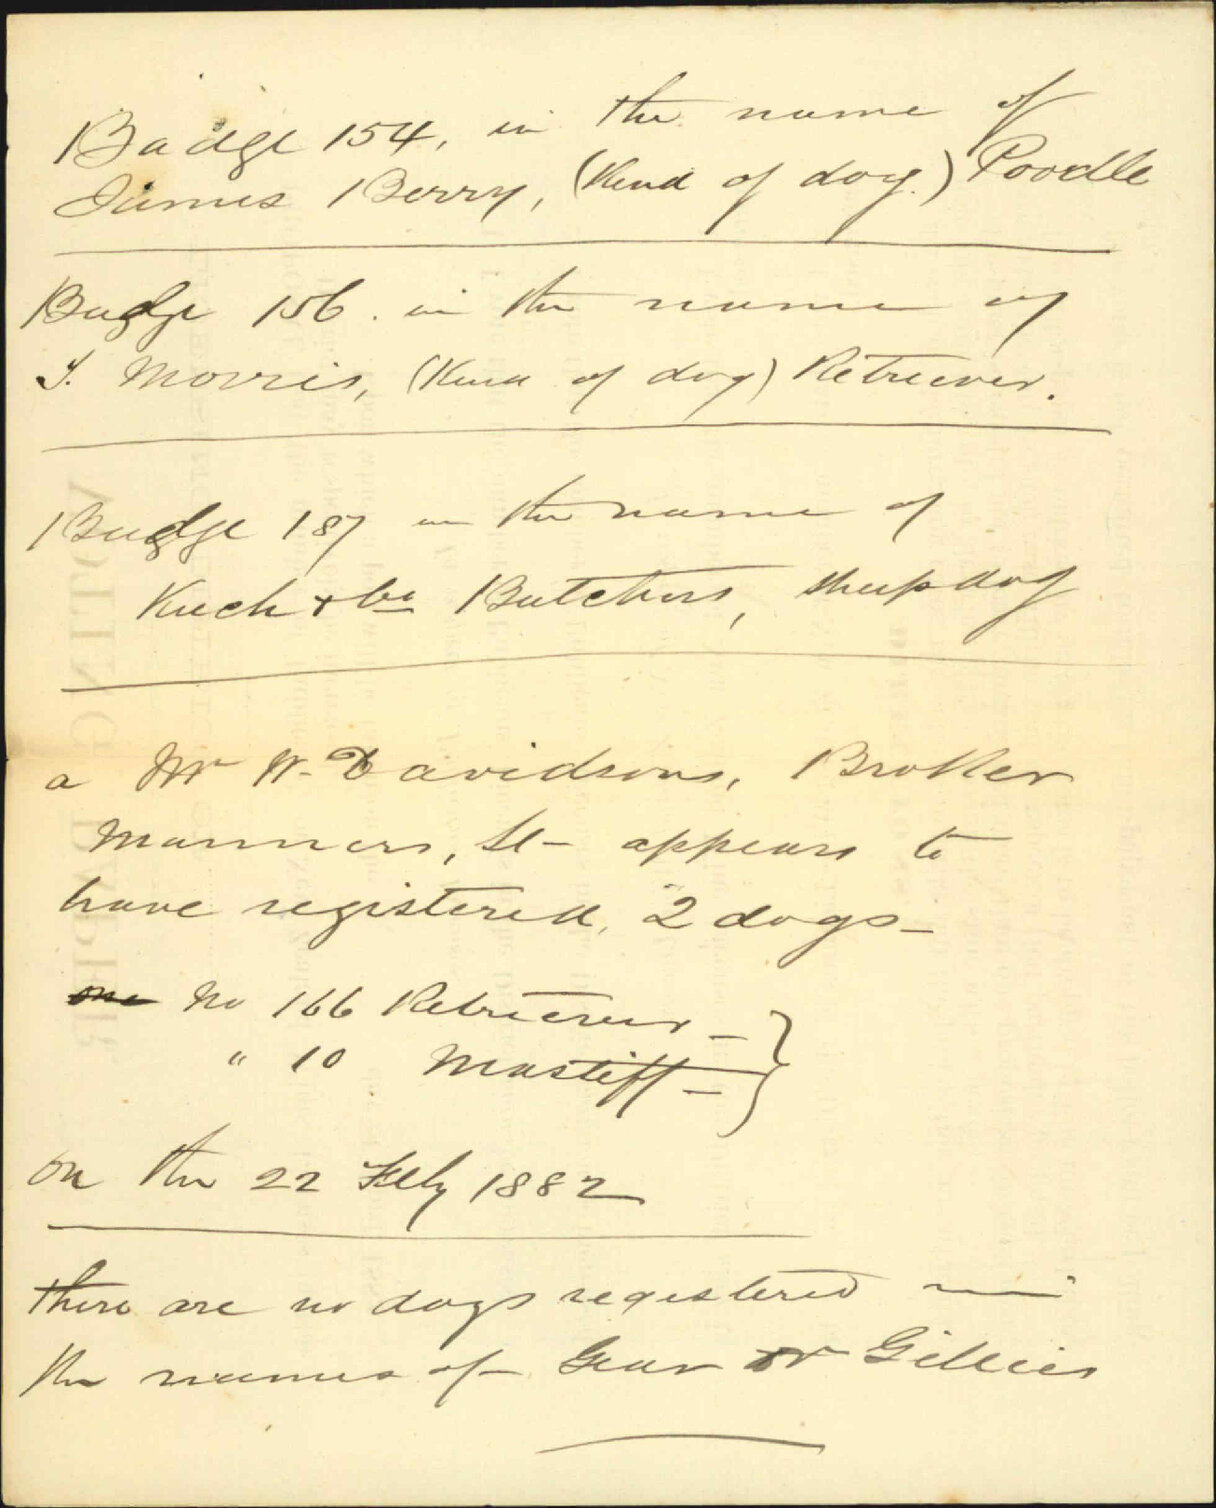 Badge 154, in the name of
James Berry, (Kind of dog.) Poodle
Badge 156. in the name of
T. Morris, (Kind of dog) Retriever.
Badge 187 in the name of
& Co Butchers, sheepdog
a Mr W. Davidsons, Broker
Manners, St - appears to
have registered, 2 dogs -
one No 166 Retriever -
" 10 Mastiff -
on the 22 Feby 1882
there are no dogs registered in
the names of - Gear or Gillies